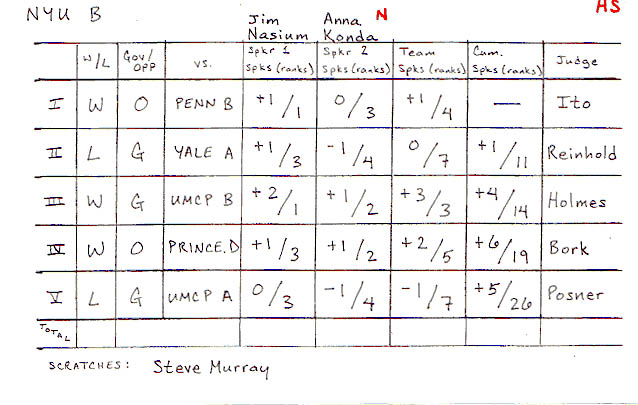 NYU B Jim Nasium Anna Konda N HS
W/L Gov/OPP vs. Spkr 1 Spks (ranks) Spkr 2 Spks (ranks) Team Spks (ranks) Cum. Spks (ranks) Judge
I W O PENN B +1/1 0/3 +1/4 — Ito
II L G YALE A +1/3 -1/4 0/7 +1/11 Reinhold
III W G UMCP B +2/1 +1/2 +3/3 +4/14 Holmes
IV W O PRINCE.D +1/3 +1/2 +2/5 +6/19 Bork
V L G UMCP A 0/3 -1/4 -1/7 +5/26 Posner
TOTAL
SCRATCHES: Steve Murray